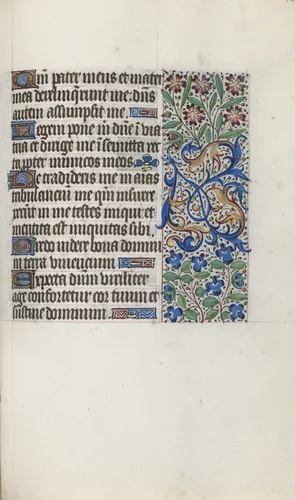 Qm pater meus et mater
mea dereliquerunt me: dns
autem assumpsit me.
Legem pone m dne i via
tua et dirige me i semita rec
ta ppter inimicos meos.
Ne tradideris me in aias
tribulancium me qm insurre
xerunt in me testes iniqui et
mentita est iniquitas sibi.
Credo videre bona domini
in terra viuencium
Expecta dnm viriliter
age confortetur cor tuum et
sustine dominum.